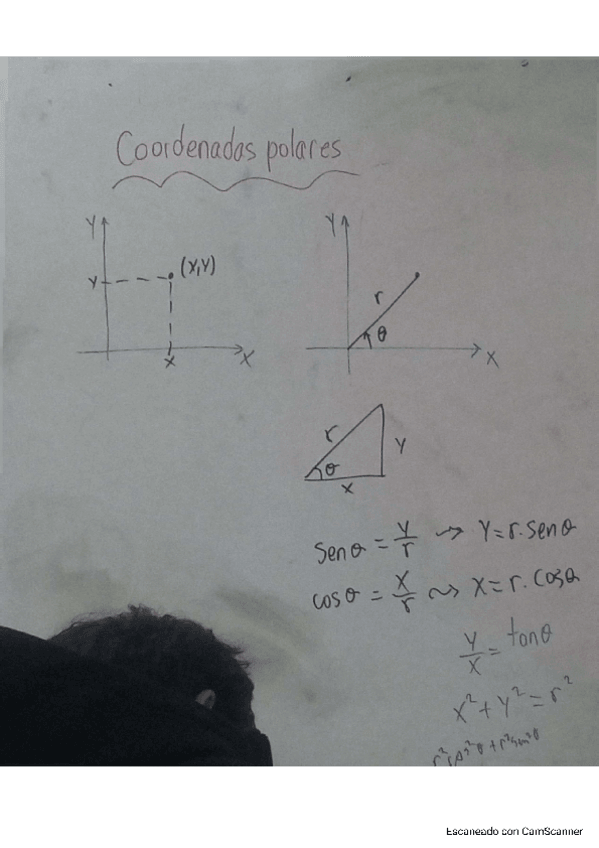 Coordenadas polares
Y
Y
(X,Y)
Y
r
θ
X
X
X
r
Y
θ
X
Senθ = Y/r → Y = r.Senθ
cosθ = X/r → X = r.Cosθ
Y/X = tanθ
X² + Y² = r²
r²cos²θ + r²sen²θ
Escaneado con CamScanner